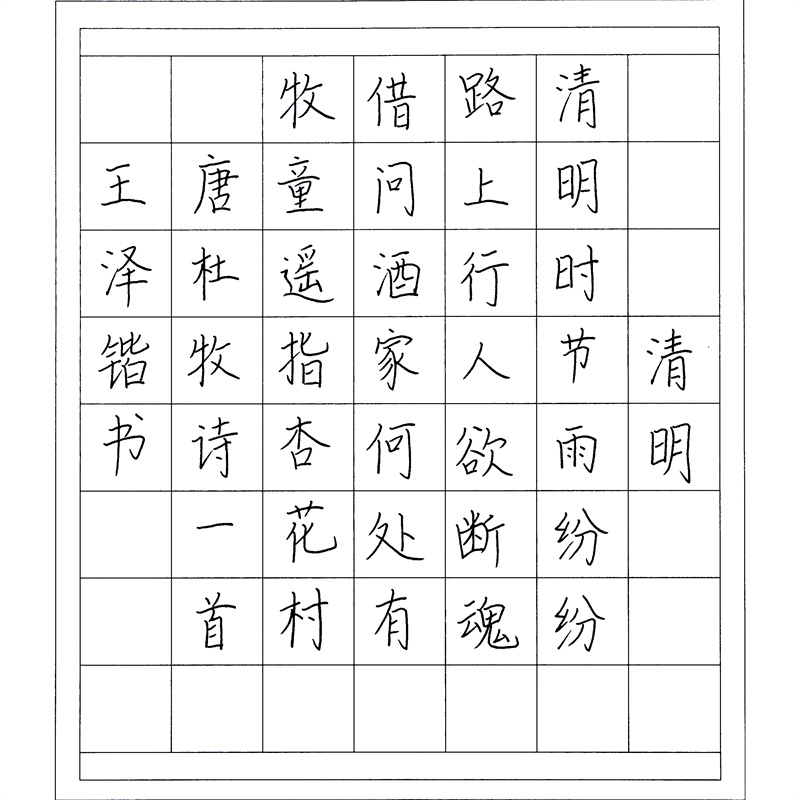 清明
清明时节雨纷纷
路上行人欲断魂
借问酒家何处有
牧童遥指杏花村
唐杜牧诗一首
王泽锴书